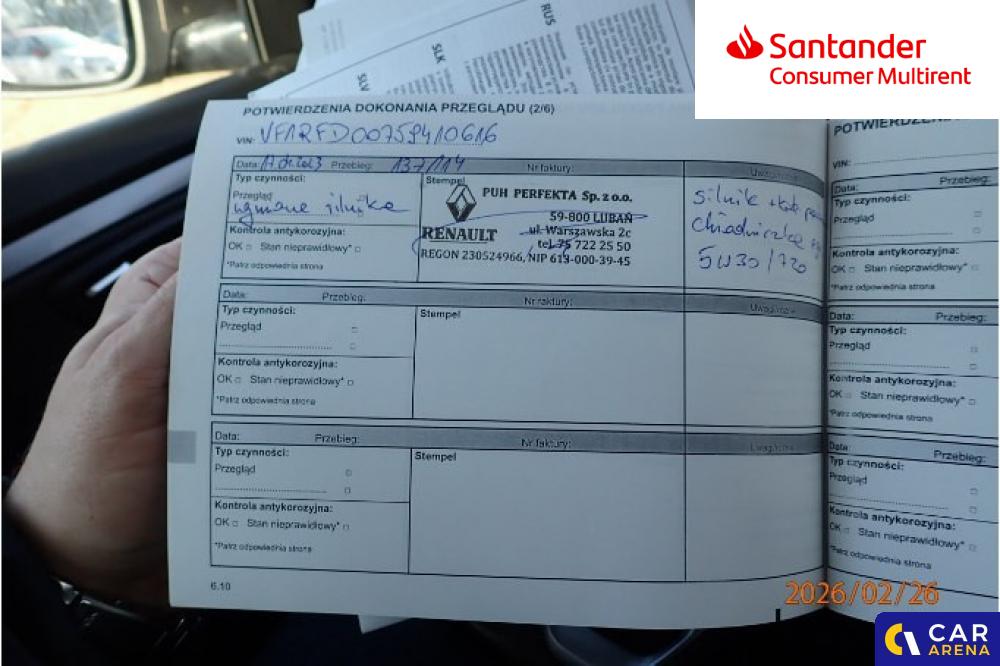 Santander
Consumer Multirent
RUS
SLK
SLV
POTWIERDZENIA DOKONANIA PRZEGLĄDU (2/6)
VIN: VF1RFD00759410616
Data: Przebieg: 137114 Nr faktury:
Typ czynności:
Przegląd
wymiana silnika
Kontrola antykorozyjna:
OK □ Stan nieprawidłowy* □
*Patrz odpowiednia strona
Stempel
PUH PERFEKTA Sp. z o.o.
59-800 LUBAŃ
RENAULT ul. Warszawska 2c
tel. 75 722 25 50
REGON 230524966, NIP 613-000-39-45
silnik
5W30/720
Data: Przebieg: Nr faktury:
Typ czynności:
Przegląd □
□
Kontrola antykorozyjna:
OK □ Stan nieprawidłowy* □
*Patrz odpowiednia strona
Stempel
Data: Przebieg: Nr faktury:
Typ czynności:
Przegląd □
□
Kontrola antykorozyjna:
OK □ Stan nieprawidłowy* □
*Patrz odpowiednia strona
Stempel
6.10
VIN:
Data: Przebieg:
Typ czynności:
Przegląd □
□
Kontrola antykorozyjna:
OK □ Stan nieprawidłowy* □
*Patrz odpowiednia strona
Data: Przebieg:
Typ czynności:
Przegląd □
□
Kontrola antykorozyjna:
OK □ Stan nieprawidłowy* □
*Patrz odpowiednia strona
Data: Przebieg:
Typ czynności:
Przegląd □
□
Kontrola antykorozyjna:
OK □ Stan nieprawidłowy* □
*Patrz odpowiednia strona
2026/02/26
CAR
ARENA